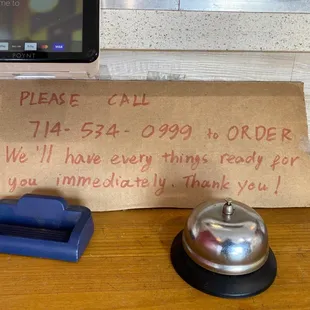 POYNT
PLEASE CALL
714-534-0999 to ORDER
We'll have every things ready for
you immediately. Thank you!